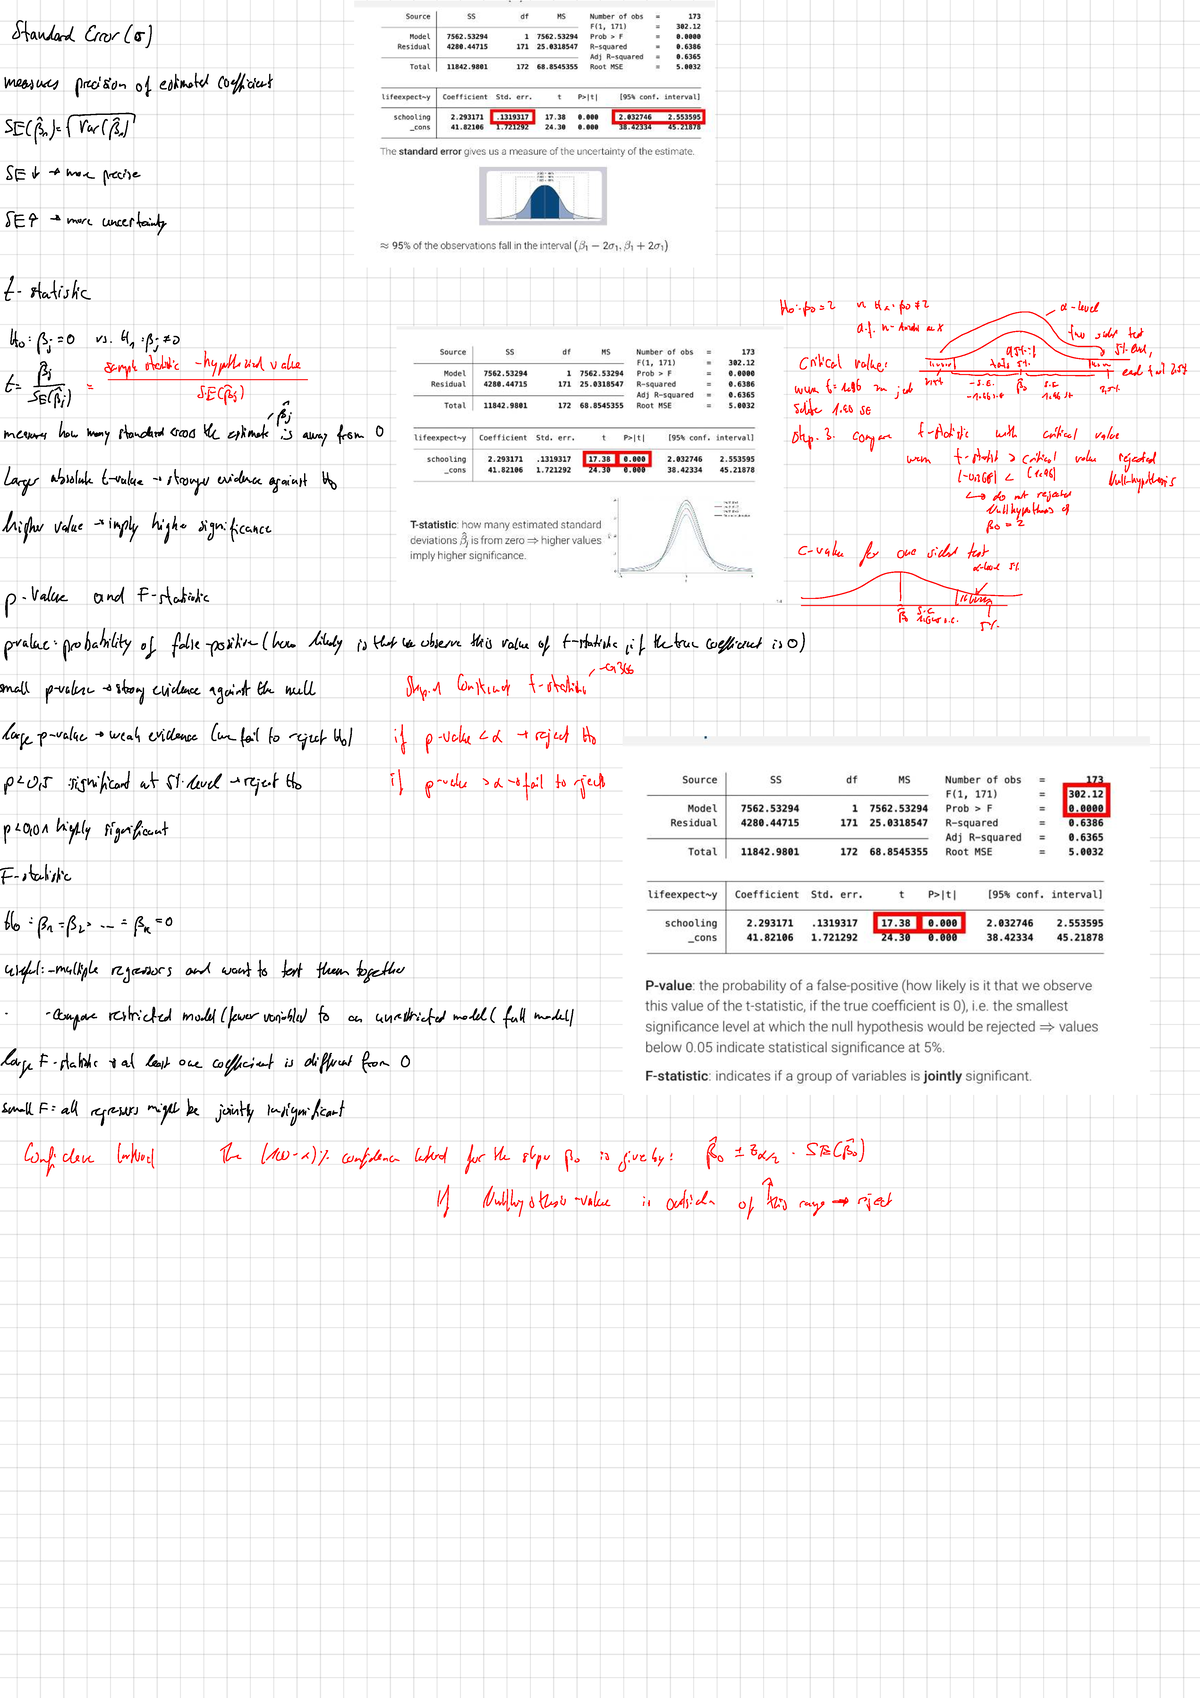 Standard Error (σ)
measures precision of estimated coefficient
SE(β̂ₙ) = √Var(β̂ₙ)
SE ↓ → more precise
SE ↑ → more uncertainty
Source SS df MS Number of obs = 173
F(1, 171) = 302.12
Model 7562.53294 1 7562.53294 Prob > F = 0.0000
Residual 4280.44715 171 25.0318547 R-squared = 0.6386
Adj R-squared = 0.6365
Total 11842.9801 172 68.8545355 Root MSE = 5.0032
lifeexpect~y Coefficient Std. err. t P>|t| [95% conf. interval]
schooling 2.293171 .1319317 17.38 0.000 2.032746 2.553595
_cons 41.82106 1.721292 24.30 0.000 38.42334 45.21878
The standard error gives us a measure of the uncertainty of the estimate.
≈ 95% of the observations fall in the interval (β̂₁ − 2σ₁, β̂₁ + 2σ₁)
t-statistic
H₀: βⱼ = 0 vs. H₁: βⱼ ≠ 0
t = β̂ⱼ / SE(β̂ⱼ) = sample statistic - hypothesized value / S.E(β̂ⱼ)
β̂ⱼ
measures how many standard errors the estimate is away from 0
Larger absolute t-value → stronger evidence against H₀
higher value → imply higher significance
Source SS df MS Number of obs = 173
F(1, 171) = 302.12
Model 7562.53294 1 7562.53294 Prob > F = 0.0000
Residual 4280.44715 171 25.0318547 R-squared = 0.6386
Adj R-squared = 0.6365
Total 11842.9801 172 68.8545355 Root MSE = 5.0032
lifeexpect~y Coefficient Std. err. t P>|t| [95% conf. interval]
schooling 2.293171 .1319317 17.38 0.000 2.032746 2.553595
_cons 41.82106 1.721292 24.30 0.000 38.42334 45.21878
T-statistic: how many estimated standard
deviations β̂ⱼ is from zero ⇒ higher values
imply higher significance.
H₀: β₀ = 2 vs Hₐ: β₀ ≠ 2
α-level
two sided test
95%
Critical value:
-S.E. β̂₀ S.E
Step. 3. compare t-statistic with critical value
wenn t-statist > critical value rejected
Nullhypothesis
|-0,368| < |1.96|
↳ do not rejected
Nullhypothesis of
β₀ = 2
C-value for one sided test
α-level 5%
β̂₀ S.E
5%
p-Value and F-statistic
p-value: probability of false-positive (how likely is it that we observe this value of t-statistic, if the true coefficient is 0)
small p-value → strong evidence against the null
Step. 1 Construct t-statistic
large p-value → weak evidence (we fail to reject H₀)
if p-value < α → reject H₀
p<0,5 significant at 5% level → reject H₀
if p-value > α → fail to reject
p<0,01 highly significant
F-statistic
H₀: β₁ = β₂ = ... = βₖ = 0
useful: - multiple regressors and want to test them together
- Compare restricted model (fewer variables) to an unrestricted model (full model)
large F-statistic → at least one coefficient is different from 0
small F = all regressors might be jointly insignificant
Source SS df MS Number of obs = 173
F(1, 171) = 302.12
Model 7562.53294 1 7562.53294 Prob > F = 0.0000
Residual 4280.44715 171 25.0318547 R-squared = 0.6386
Adj R-squared = 0.6365
Total 11842.9801 172 68.8545355 Root MSE = 5.0032
lifeexpect~y Coefficient Std. err. t P>|t| [95% conf. interval]
schooling 2.293171 .1319317 17.38 0.000 2.032746 2.553595
_cons 41.82106 1.721292 24.30 0.000 38.42334 45.21878
P-value: the probability of a false-positive (how likely is it that we observe
this value of the t-statistic, if the true coefficient is 0), i.e. the smallest
significance level at which the null hypothesis would be rejected ⇒ values
below 0.05 indicate statistical significance at 5%.
F-statistic: indicates if a group of variables is jointly significant.
Confidence Interval The (100-α)% confidence interval for the slope β₀ is given by: β̂₀ ± z_α/2 · SE(β̂₀)
If Nullhypothesis-value is outside of this range → reject